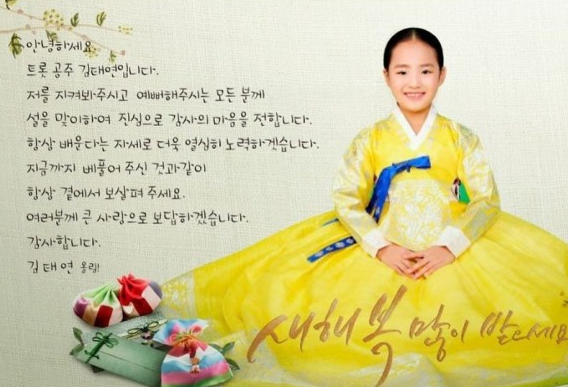 안녕하세요
트롯 공주 김태연입니다.
저를 지켜봐주시고 예뻐해주시는 모든 분께
설을 맞이하여 진심으로 감사의 마음을 전합니다.
항상 배운다는 자세로 더욱 열심히 노력하겠습니다.
지금까지 베풀어 주신 것과같이
항상 곁에서 보살펴 주세요.
여러분께 큰 사랑으로 보답하겠습니다.
감사합니다.
김태연 올림!
새해 복 많이 받으세요